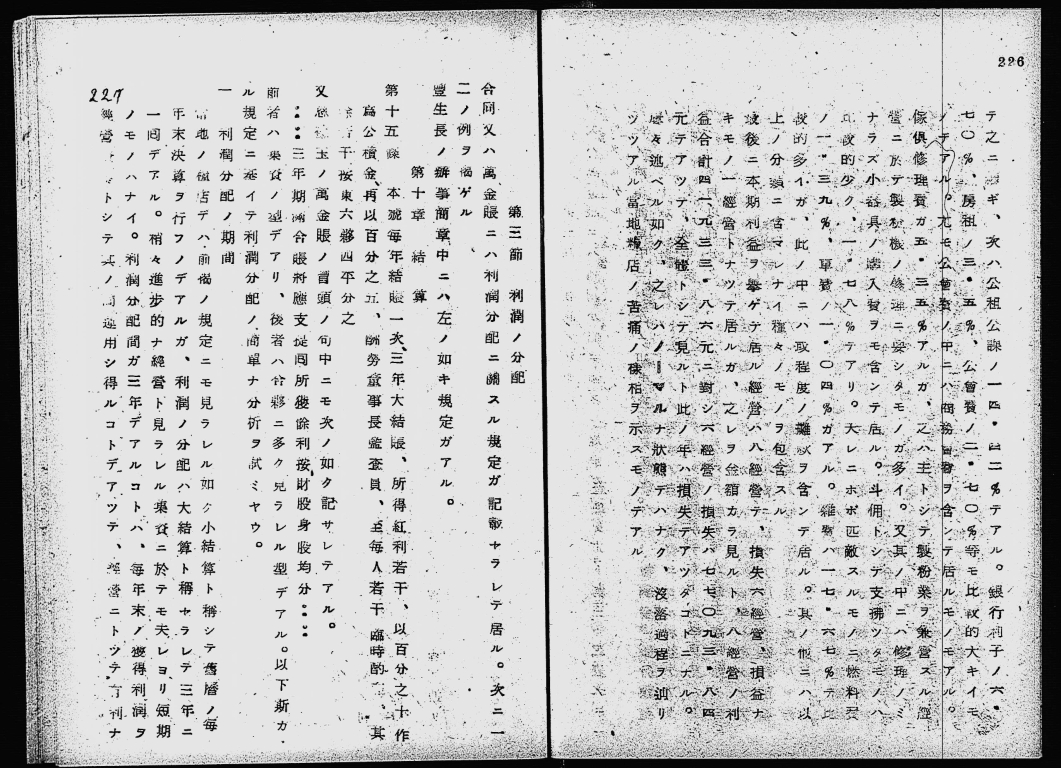 226
テ之ニ ギ、次ハ公租公課ノ一四・四二%デアル。銀行利子ノ六・
七〇%、房租ノ三・五%、公會費ノ二・七〇%等モ比較的大キイモ
ノデアル。尤モ公會費ノ中ニハ商務會費ヲ含ンデ居ルモノモアル。
傢俱修理費ガ五・三五%アルガ、之ハ主トシテ製粉業ヲ兼營スル經
營ニ於テ製粉機ノ修理ニ要シタモノガ多イ。又其ノ中ニハ修理ノミ
ナラズ小器具ノ購入費ヲモ含ンデ居ル。斗佣トシテ支拂ツタモノハ
比較的少ク、一・七八%デアリ。大レニホボ匹敵スルモノニ燃料費
ノ一・三九%、車費ノ一・〇四%ガアル。雜費ハ一七・六七%デ比
較的多イガ、此ノ中ニハ或程度ノ難 ヲ含ンデ居ル。其ノ他ニハ以
上ノ分類ニ含マレナイ種々ノモノヲ包含スル
最後ニ本期利益ヲ擧ゲテ居ル經營ハ八經營デ、損失六經營、損益ナ
キモノ一經營トナツテ居ルガ、之レヲ金額カラ見ルト、八經營ノ利
益合計四一、九三三・八六元ニ對シ六經營ノ損失ハ七七〇九三・八四
元デアツテ、全體トシテ見ルト此ノ年ハ損失デアツタコトニナル。
々述ベル如ク、之レハノーマルナ狀態デハナク、沒落過程ヲ辿リ
ツツアル當地糧店ノ苦痛ノ樣相ヲ示スモノデアル
227
第三節 利潤ノ分配
合同又ハ萬金賬ニハ利潤分配ニ關スル規定ガ記載セラレテ居ル。次ニ一
二ノ例ヲ揭ゲル
豐生長ノ辦事簡章中ニハ左ノ如キ規定ガアル。
第十章 結 算
第十五條 本號每年結賬一次、三年大結賬、所得紅利若干、以百分之十作
爲公積金、再以百分之五、酬勞董事長監査員、至每人若干 臨時酌 、其
餘若干按東六夥四平分之
又 玉ノ萬金賬ノ首頭ノ句中ニモ次ノ如ク記サレテアル。
・・・・三年期滿合賬將應支 同所獲餘利按財股身股均分・・・・
前者ハ集資ノ型デアリ、後者ハ合夥ニ多ク見ラレル型デアル。以下斯カ
ル規定ニ基イテ利潤分配ノ簡單ナ分析ヲ試ミヤウ。
一 利潤分配ノ期間
當地ノ糧店デハ、前揭ノ規定ニモ見ラレル如ク小結算ト稱シテ舊曆ノ每
年末決算ヲ行フノデアルガ、利潤ノ分配ハ大結算ト稱セラレテ三年ニ
一回デアル。稍々進步的ナ經營ト見ラレル集資ニ於テモ夫レヨリ短期
ノモノハナイ。利潤分配期間ガ三年デアルコトハ、每年末ノ獲得利潤ヲ
經營 トシテ其ノ 運用シ得ルコトデアツテ、經營ニトツテ有利ナ